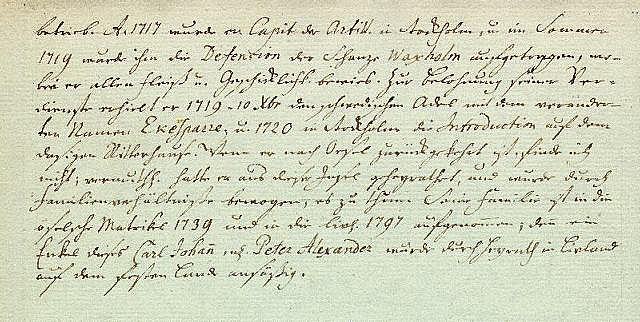 betrieb. A. 1717 wurde er Capit. der Artill. in Stockholm, u. im Sommer
1719 wurde ihm die Defension der Schanze Waxholm aufgetragen, wo-
bei er allen Fleiß u. Geschicklichk. bewies. Zur Belohnung seiner Ver-
dienste erhielt er 1719 10 Xbr den schwedischen Adel mit dem veränder-
ten Namen Ekesparre, u. 1720 in Stockholm die Introduction auf dem
dasigen Ritterhause. Wenn er nach Oesel zurückgekehrt ist, finde ich
nicht; vermuthl. hatte er aus dieser Insel geheyrathet, und wurde durch
Familienverhältnisse bewogen, es zu thun. Seine Familie ist in die
oeselsche Matrikel 1739 und in die livl. 1797 aufgenommen; denn ein
Enkel dieses Carl Johañ Peter Alexander wurde durch Heyrath in Livland
auf dem festen Lande ansäßig.